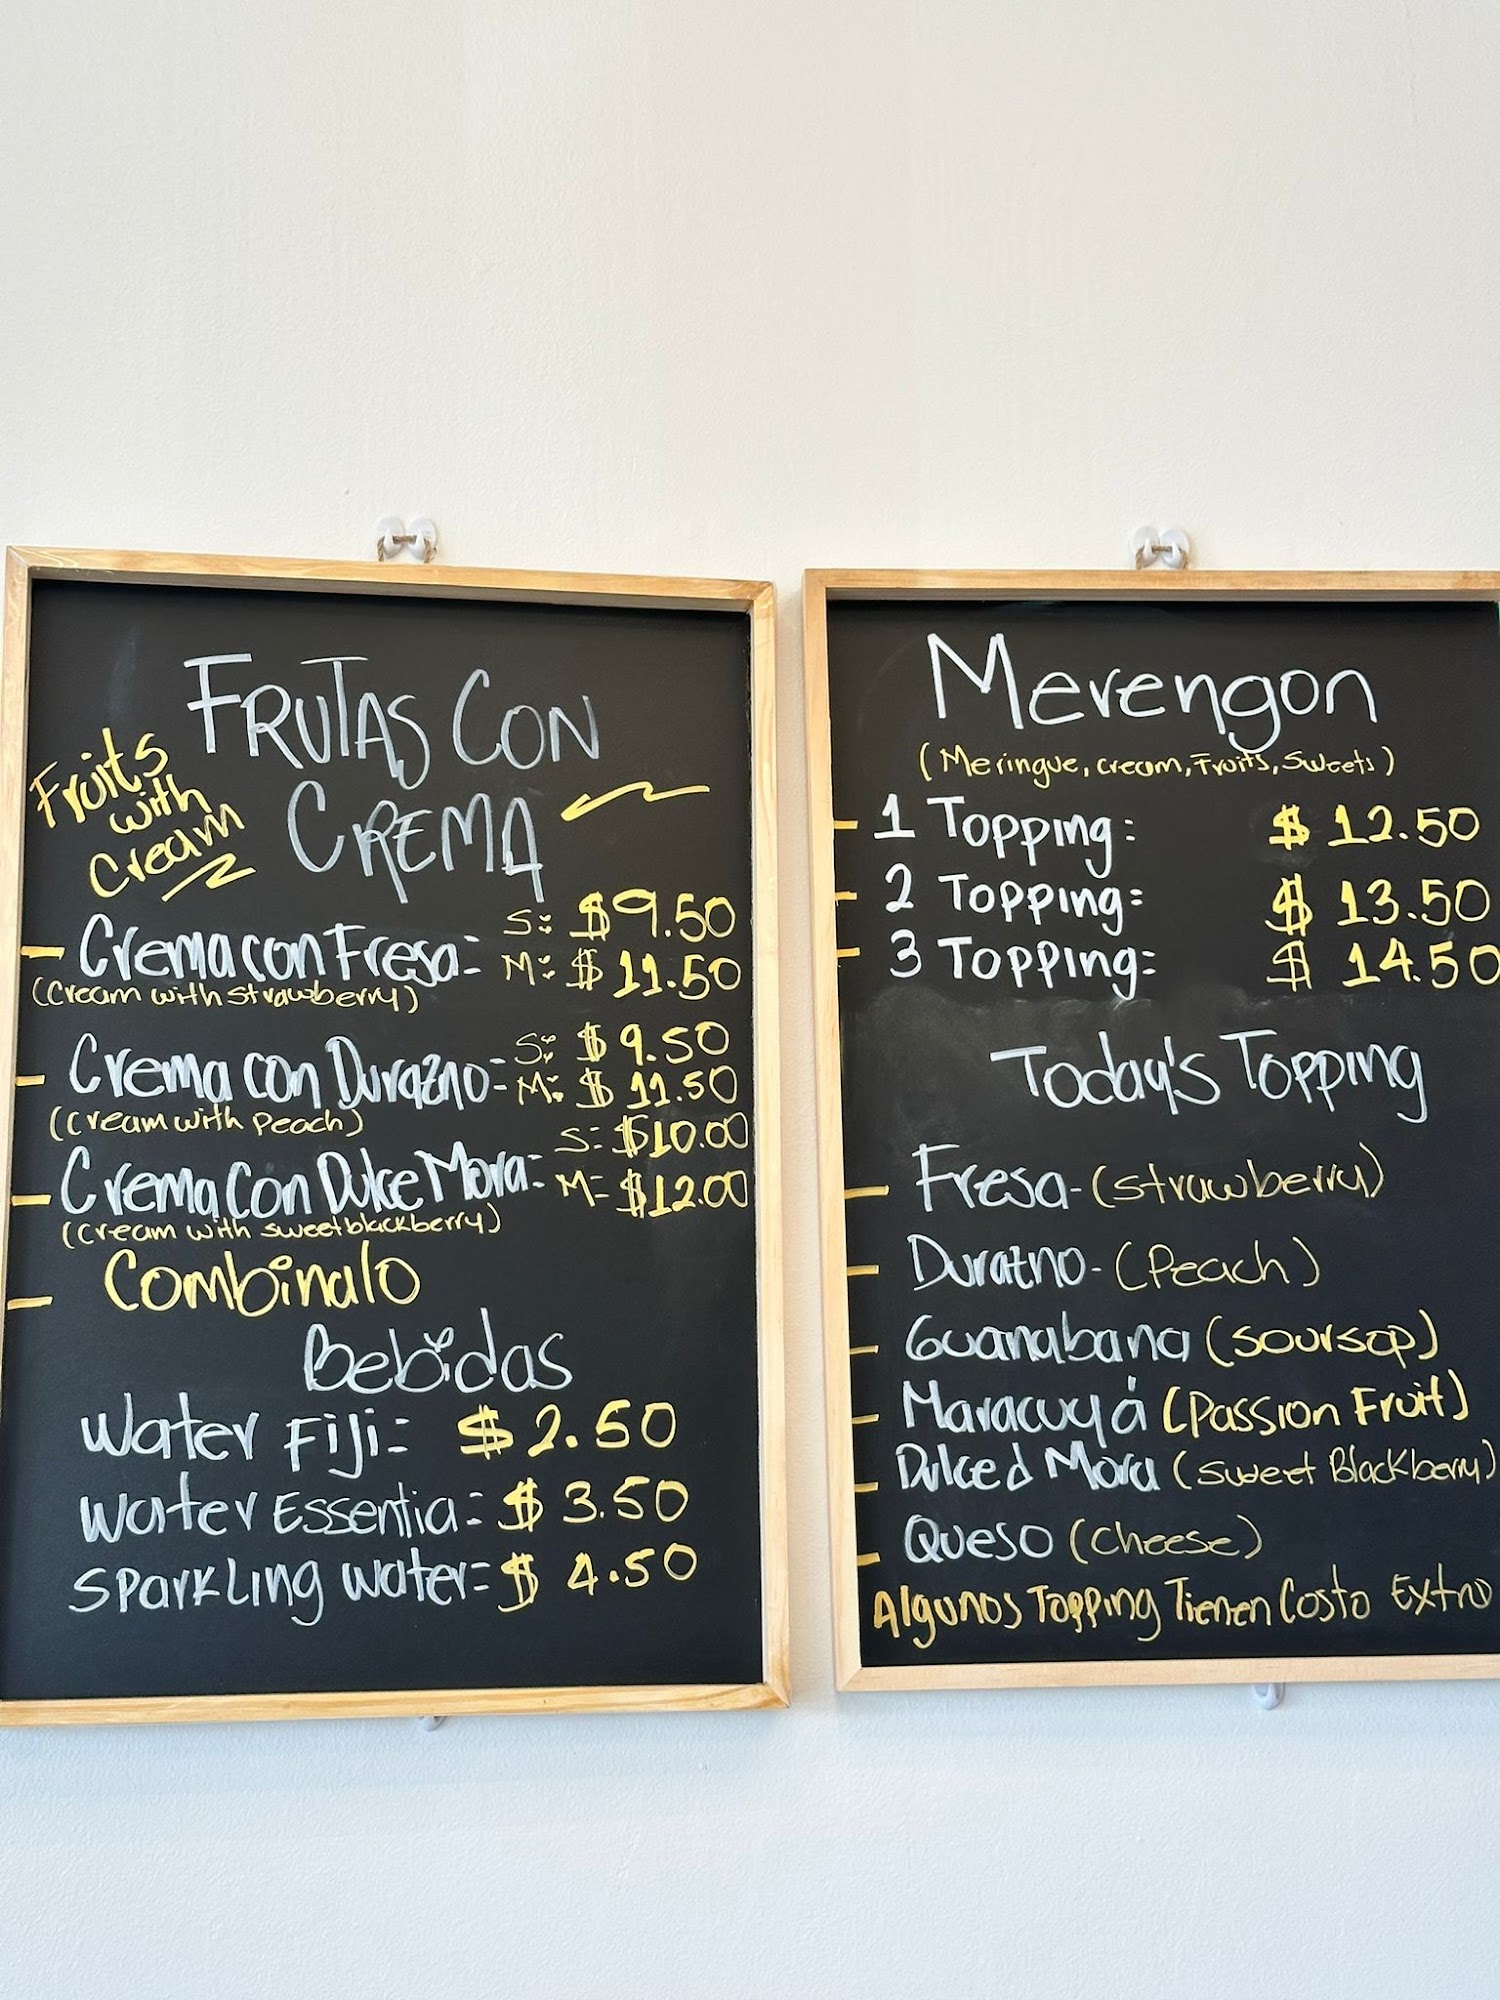 FRUTAS CON
CREMA
Fruits
with
Cream
- Crema con Fresa: S: $9.50
M: $11.50
(Cream with strawberry)
- Crema con Duratzno: S: $9.50
M: $11.50
(Cream with Peach)
- Crema Con Dulce Mora: S: $10.00
M: $12.00
(Cream with sweet blackberry)
- Combinalo
Bebidas
Water Fiji: $2.50
Water Essentia: $3.50
Sparkling Water: $4.50
Merengon
(Meringue, cream, Fruits, Sweets)
- 1 Topping: $12.50
- 2 Topping: $13.50
- 3 Topping: $14.50
Today's Topping
- Fresa - (strawberry)
- Duratzno - (Peach)
- Guanabana (soursop)
- Maracuyá (Passion Fruit)
- Dulce d Mora (sweet Blackberry)
- Queso (cheese)
Algunos Topping Tienen Costo Extra